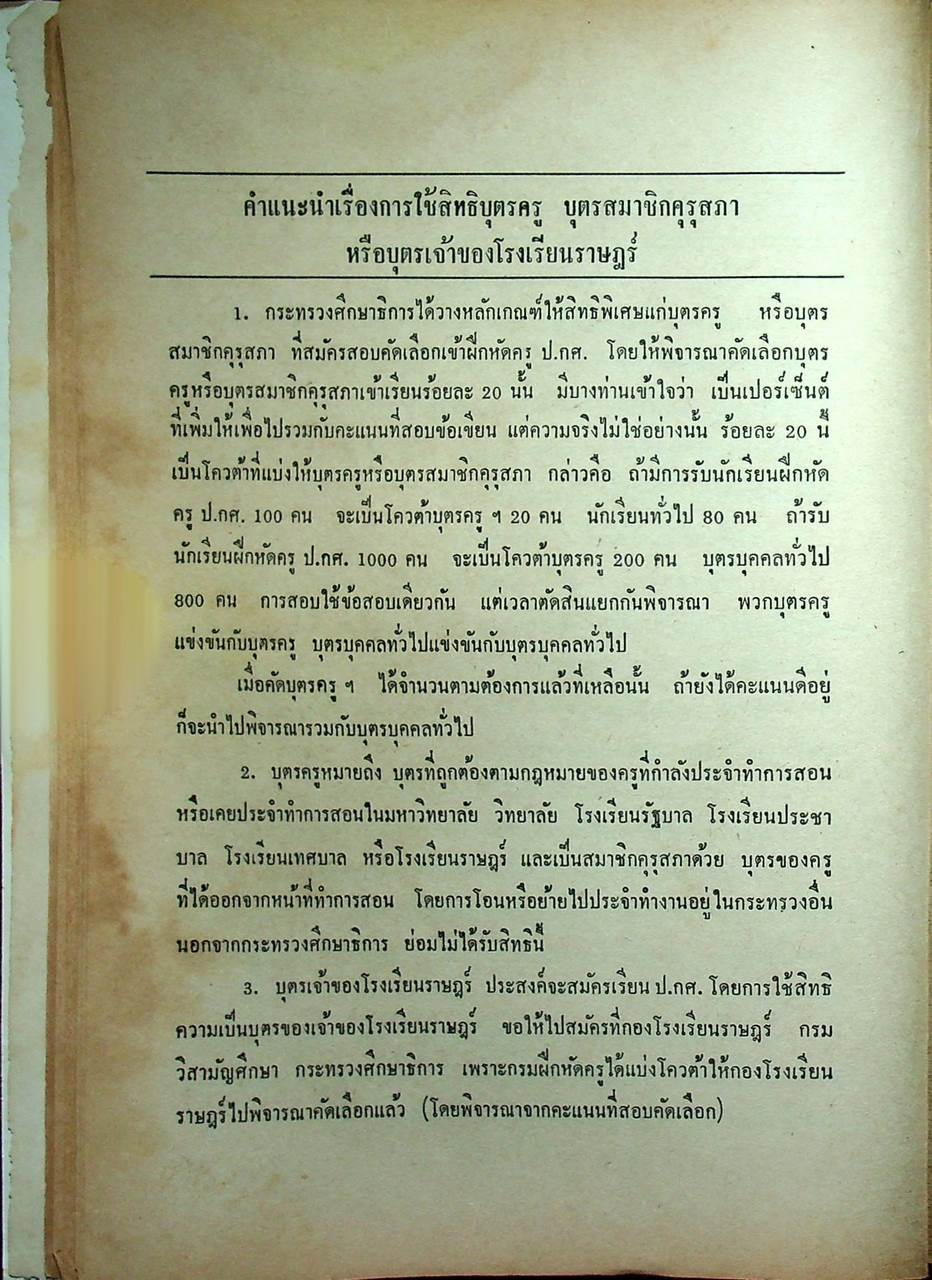 คำแนะนำเรื่องการใช้สิทธิบุตรครู บุตรสมาชิกคุรุสภา
หรือบุตรเจ้าของโรงเรียนราษฎร์
1. กระทรวงศึกษาธิการได้วางหลักเกณฑ์ให้สิทธิพิเศษแก่บุตรครู หรือบุตร
สมาชิกคุรุสภา ที่สมัครสอบคัดเลือกเข้าฝึกหัดครู ป.กศ. โดยให้พิจารณาคัดเลือกบุตร
ครูหรือบุตรสมาชิกคุรุสภาเข้าเรียนร้อยละ 20 นั้น มีบางท่านเข้าใจว่า เป็นเปอร์เซ็นต์
ที่เพิ่มให้เพื่อไปรวมกับคะแนนที่สอบข้อเขียน แต่ความจริงไม่ใช่อย่างนั้น ร้อยละ 20 นี้
เป็นโควต้าที่แบ่งให้บุตรครูหรือบุตรสมาชิกคุรุสภา กล่าวคือ ถ้ามีการรับนักเรียนฝึกหัด
ครู ป.กศ. 100 คน จะเป็นโควต้าบุตรครู ฯ 20 คน นักเรียนทั่วไป 80 คน ถ้ารับ
นักเรียนฝึกหัดครู ป.กศ. 1000 คน จะเป็นโควต้าบุตรครู 200 คน บุตรบุคคลทั่วไป
800 คน การสอบใช้ข้อสอบเดียวกัน แต่เวลาตัดสินแยกกันพิจารณา พวกบุตรครู
แข่งขันกับบุตรครู บุตรบุคคลทั่วไปแข่งขันกับบุตรบุคคลทั่วไป
เมื่อคัดบุตรครู ฯ ได้จำนวนตามต้องการแล้วที่เหลือนั้น ถ้ายังได้คะแนนดีอยู่
ก็จะนำไปพิจารณารวมกับบุตรบุคคลทั่วไป
2. บุตรครูหมายถึง บุตรที่ถูกต้องตามกฎหมายของครูที่กำลังประจำทำการสอน
หรือเคยประจำทำการสอนในมหาวิทยาลัย วิทยาลัย โรงเรียนรัฐบาล โรงเรียนประชา
บาล โรงเรียนเทศบาล หรือโรงเรียนราษฎร์ และเป็นสมาชิกคุรุสภาด้วย บุตรของครู
ที่ได้ออกจากหน้าที่ทำการสอน โดยการโอนหรือย้ายไปประจำทำงานอยู่ในกระทรวงอื่น
นอกจากกระทรวงศึกษาธิการ ย่อมไม่ได้รับสิทธินี้
3. บุตรเจ้าของโรงเรียนราษฎร์ ประสงค์จะสมัครเรียน ป.กศ. โดยการใช้สิทธิ
ความเป็นบุตรของเจ้าของโรงเรียนราษฎร์ ขอให้ไปสมัครที่กองโรงเรียนราษฎร์ กรม
วิสามัญศึกษา กระทรวงศึกษาธิการ เพราะกรมฝึกหัดครูได้แบ่งโควต้าให้กองโรงเรียน
ราษฎร์ไปพิจารณาคัดเลือกแล้ว (โดยพิจารณาจากคะแนนที่สอบคัดเลือก)